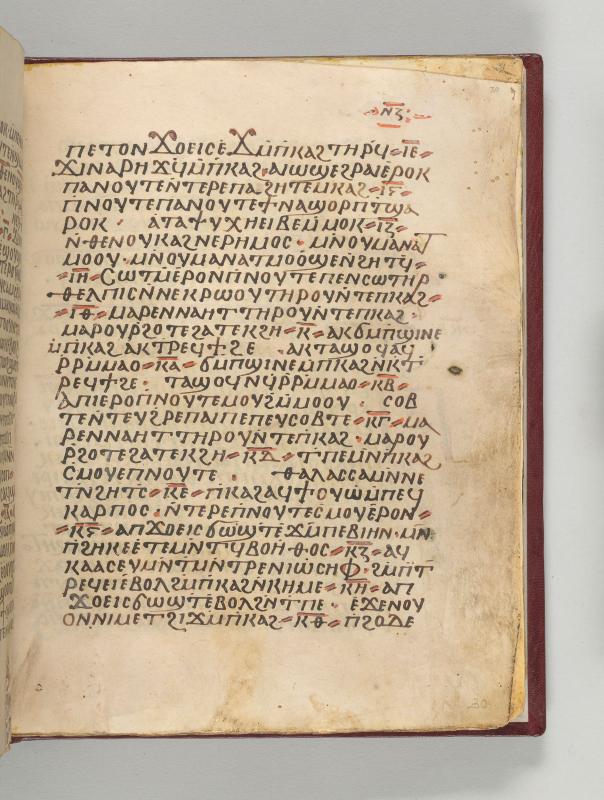 ⲛ̅ⲍ̅
ⲡⲉⲧⲟⲛϪⲟⲉⲓⲥⲉϪⲙ̄ⲡⲕⲁϩⲧⲏⲣϥ·ⲓ̅ⲉ̅
Ϫⲓⲛⲁⲣⲏϫϥⲙ̄ⲡⲕⲁϩ·ⲁⲓⲱϣⲉϩⲣⲁⲓⲉⲣⲟⲕ
ⲡⲁⲛⲟⲩⲧⲉⲛⲧⲉⲣⲉⲡⲁϩⲏⲧⲉⲙⲕⲁϩ·ⲓ̅ⲋ̅
ⲡⲛⲟⲩⲧⲉⲡⲁⲛⲟⲩⲧⲉϯⲛⲁϣⲟⲣⲡⲧϣⲁ
ⲣⲟⲕ· ⲁⲧⲁⲯⲩⲭⲏⲉⲓⲃⲉⲙ̄ⲙⲟⲕ·ⲓ̅ⲍ̅
ⲛ̄ⲑⲉⲛⲟⲩⲕⲁϩⲛⲉⲣⲏⲙⲟⲥ·ⲙⲛⲟⲩⲙⲁⲛⲁⲧ
ⲙⲟⲟⲩ·ⲙⲛⲟⲩⲙⲁⲛⲁⲧⲙⲟⲟϣⲉⲛϩⲏⲧϥ·
ⲓ̅ⲏ̅ Ⲥⲱⲧⲙⲉⲣⲟⲛⲡⲛⲟⲩⲧⲉⲡⲉⲛⲥⲱⲧⲏⲣ
ⲑⲉⲗⲡⲓⲥⲛ̄ⲛⲉⲕⲣⲱⲟⲩⲧⲏⲣⲟⲩⲛ̄ⲧⲉⲡⲕⲁϩ·
ⲓ̅ⲑ̅·ⲙⲁⲣⲉⲛⲛⲁⲏⲧⲧⲏⲣⲟⲩⲛ̄ⲧⲉⲡⲕⲁϩ·
ⲙⲁⲣⲟⲩⲣϩⲟⲧⲉϩⲁⲧⲉⲕϩⲏ·ⲕ̅·ⲁⲕϭⲙⲡϣⲓⲛⲉ
ⲙ̄ⲡⲕⲁϩⲁⲕⲧⲣⲉϥϯϩⲉ·ⲁⲕⲧⲁϣⲟϥⲁϥ
ⲣ̄ⲣⲙ̄ⲙⲁⲟ·ⲕ̅ⲁ̅·ϭⲙⲡϣⲓⲛⲉⲙ̄ⲡⲕⲁϩⲛ̄ⲕⲧ
ⲣⲉϥϯϩⲉ· ⲧⲁϣⲟϥⲛϥⲣ̄ⲣⲙ̄ⲙⲁⲟ·ⲕ̅ⲃ̅·
ⲁⲡⲓⲉⲣⲟⲡⲛⲟⲩⲧⲉⲙⲟⲩϩⲙ̄ⲙⲟⲟⲩ· ⲥⲟⲃ
ⲧⲉⲛ̄ⲧⲉⲩϩⲣⲉⲡⲁⲓⲡⲉⲡⲉⲩⲥⲟⲃⲧⲉ·ⲕ̅ⲅ̅·ⲙⲁ
ⲣⲉⲛⲛⲁⲏⲧⲧⲏⲣⲟⲩⲛ̄ⲧⲉⲡⲕⲁϩ·ⲙⲁⲣⲟⲩ
ⲣ̄ϩⲟⲧⲉϩⲁⲧⲉⲕϩⲏ·ⲕ̅ⲇ̅·ⲧⲡⲉⲙⲛ̄ⲡⲕⲁϩ
ⲥⲙⲟⲩⲉⲡⲛⲟⲩⲧⲉ· ⲑⲁⲗⲁⲥⲥⲁⲙⲛ̄ⲛⲉ
ⲧⲛ̄ϩⲏⲧⲥ·ⲕ̅ⲉ̅·ⲡⲕⲁϩⲁϥϯⲟⲩⲱⲙ̄ⲡⲉϥ
ⲕⲁⲣⲡⲟⲥ·ⲛ̄ⲧⲉⲣⲉⲡⲛⲟⲩⲧⲉⲥⲙⲟⲩⲉⲣⲟⲛ·
ⲕ̅ⲋ̅·ⲁⲡϪⲟⲉⲓⲥϭⲱϣⲧⲉϫⲙ̄ⲡⲉⲃⲓⲏⲛ·ⲙⲛ
ⲡϩⲏⲕⲉⲉⲧⲉⲙⲛ̄ⲧϥⲃⲟⲏⲑⲟⲥ·ⲕ̅ⲍ̅·ⲁϥ
ⲕⲁⲁⲥⲉⲩⲙⲛ̄ⲧⲙⲛ̄ⲧⲣⲉⲛⲓⲱⲥⲏⲫ·ϩⲙ̄ⲡⲧ
ⲣⲉϥⲉⲓⲉⲃⲟⲗϩⲙ̄ⲡⲕⲁϩⲛ̄ⲕⲏⲙⲉ·ⲕ̅ⲏ̅·ⲁⲡ
Ϫⲟⲉⲓⲥϭⲱϣⲧⲉⲃⲟⲗϩⲛ̄ⲧⲡⲉ· ⲉϫⲉⲛⲟⲩ
ⲟⲛⲛⲓⲙⲉⲧϩⲓϫⲙ̄ⲡⲕⲁϩ·ⲕ̅ⲑ̅·ⲡ̄ϩⲟⲇⲉ
30